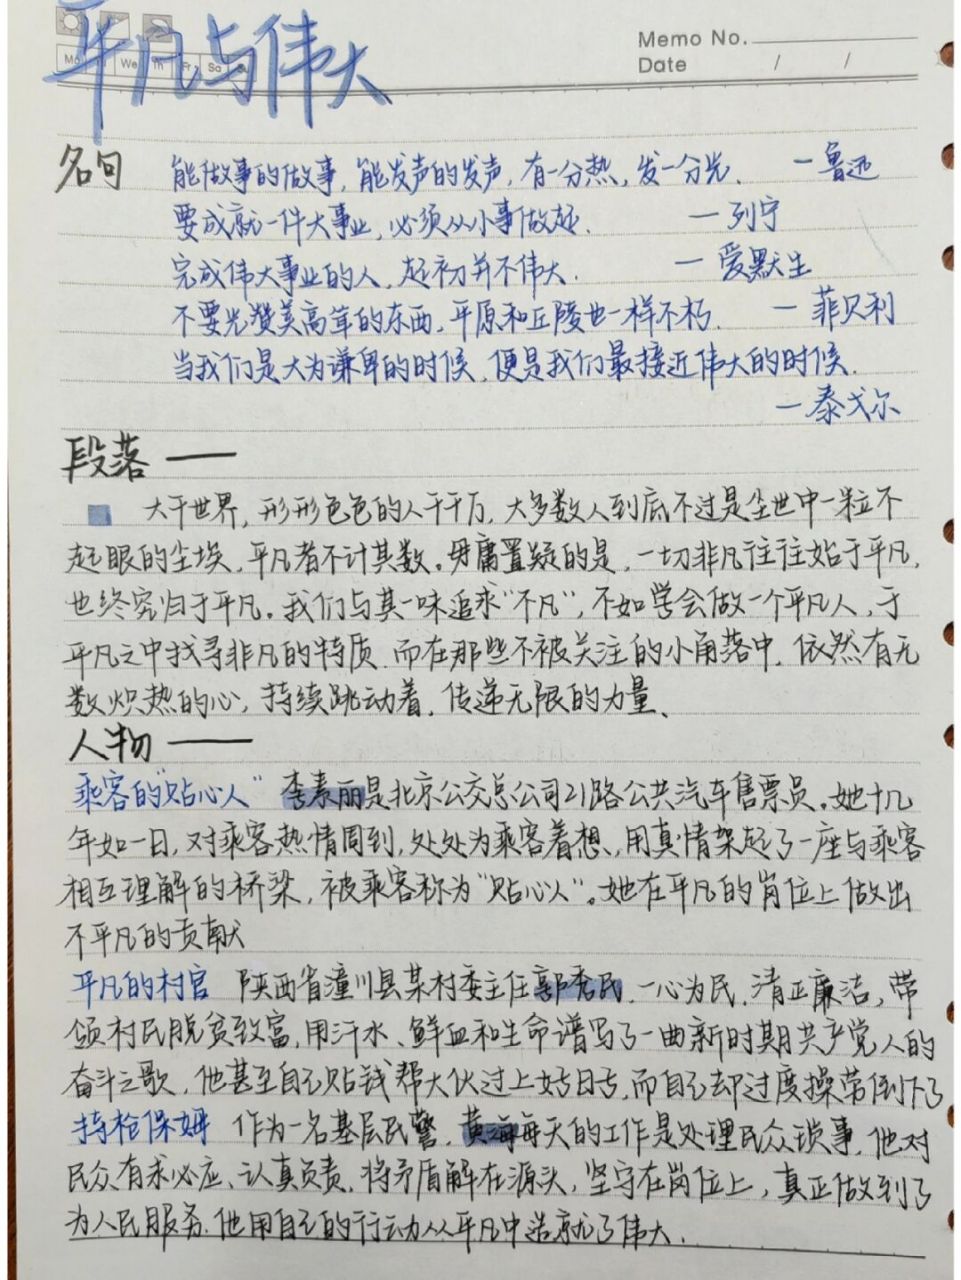 平凡与伟大
Memo No.
Date / /
Mo We Th Fr Sa
名句 能做事的做事，能发声的发声，有一分热，发一分光． —鲁迅
要成就一件大事业，必须从小事做起． —列宁
完成伟大事业的人，起初并不伟大． —爱默生
不要光赞美高耸的东西，平原和丘陵也一样不朽． —菲贝利
当我们是大为谦卑的时候，便是我们最接近伟大的时候．
—泰戈尔
段落——
大千世界，形形色色的人千千万，大多数人到底不过是尘世中一粒不
起眼的尘埃，平凡者不计其数。毋庸置疑的是，一切非凡往往始于平凡，
也终究归于平凡。我们与其一味追求“不凡”，不如学会做一个平凡人，于
平凡之中找寻非凡的特质．而在那些不被关注的小角落中，依然有无
数炽热的心，持续跳动着，传递无限的力量、
人物——
乘客的“贴心人” 李素丽是北京公交总公司21路公共汽车售票员。她十几
年如一日，对乘客热情周到，处处为乘客着想，用真情架起了一座与乘客
相互理解的桥梁，被乘客称为“贴心人”。她在平凡的岗位上做出
不平凡的贡献
平凡的村官 陕西省潼川县某村委主任郭秀民，一心为民，清正廉洁，带
领村民脱贫致富，用汗水、鲜血和生命谱写了一曲新时期共产党人的
奋斗之歌，他甚至自己贴钱帮大伙过上好日子，而自己却过度操劳倒下了
持枪保姆 作为一名基层民警，黄海每天的工作是处理民众琐事，他对
民众有求必应、认真负责，将矛盾解在源头，坚守在岗位上，真正做到了
为人民服务．他用自己的行动从平凡中造就了伟大．